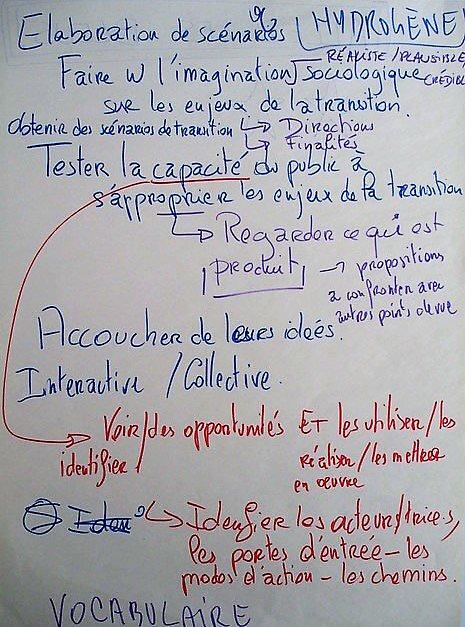 Elaboration de scénarios HYDROGÈNE
RÉALISTE / PLAUSIBLE
Faire W l'imagination sociologique CRÉDIBLE
sur les enjeux de la transition.
Obtenir des scénarios de transition → Directions
→ Finalités
Tester la capacité du public à
s'approprier les enjeux de la transition
→ Regarder ce qui est
produit → propositions
à confronter avec
autres points de vue
Accoucher de leurs idées.
Interactive / Collective.
→ Voir / des opportunités ET les utiliser / les
identifier / réaliser / les mettre
en oeuvre
→ Idenfier les acteurs/trices,
les portes d'entrée - les
modes d'action - les chemins.
VOCABULAIRE